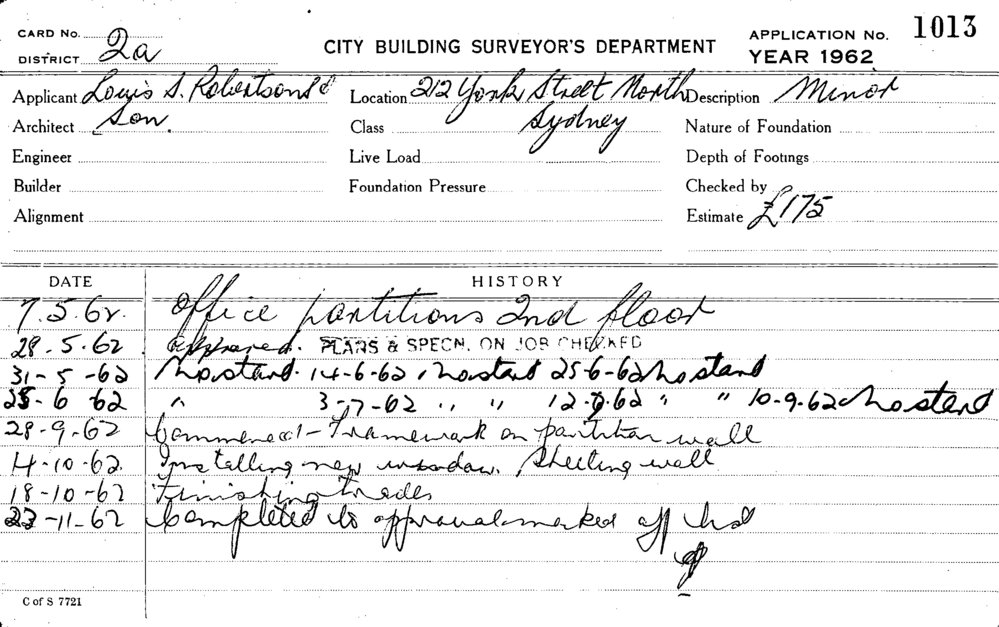 CARD No.
DISTRICT 2a
CITY BUILDING SURVEYOR'S DEPARTMENT
APPLICATION No. 1013
YEAR 1962
Applicant Louis S. Robertson &
Location 212 York Street North
Description Minor
Architect Son.
Class Sydney
Nature of Foundation
Engineer
Live Load
Depth of Footings
Builder
Foundation Pressure
Checked by
Alignment
Estimate £175
DATE HISTORY
7.5.62. Office partitions 2nd floor
28.5.62 Approved. PLANS & SPECN. ON JOB CHECKED
31-5-62 No start. 14-6-62, No start 25-6-62 No start
25-6 62 " 3-7-62 " " 12-7-62 " " 10-9-62 No start
28-9-62 Commenced - Framework on partition wall
4-10-62. Installing new window. Sheeting wall
18-10-62 Finishing trades
23-11-62 Completed to approval marked off
C of S 7721